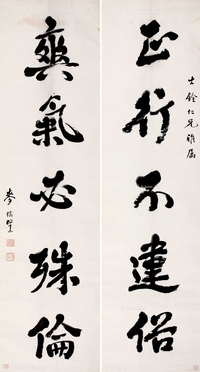 士銓仁兄雅屬
正行不違俗
爽氣必殊倫
麥信堅